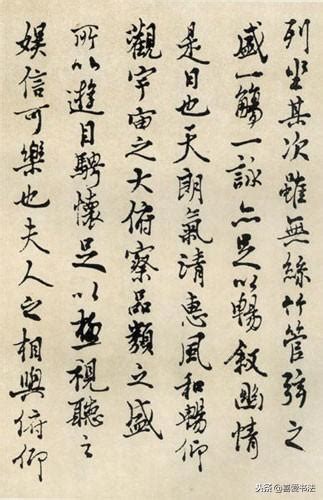 列坐其次雖無絲竹管弦之
盛一觴一詠亦足以暢敘幽情
是日也天朗氣清惠風和暢仰
觀宇宙之大俯察品類之盛
所以遊目騁懷足以極視聽之
娛信可樂也夫人之相與俯仰
头条 @喜爱书法